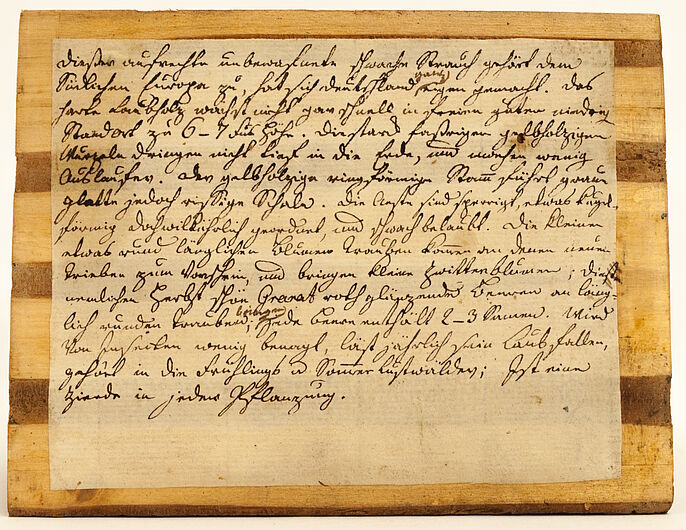 Dießer aufrechte unbewafnete schwache Strauch gehört dem
Südlichen Europa zu, hat sich deutschland ganz eigen gemacht. Das
harte Laubholz wächst nicht gar schnell in freien guten niedrig
Standort zu 6 – 7 Fuß Höhe. Die stark faßrigen gelbholzigen
Wurzeln dringen nicht tief in die Erde, und machen wenig
Ausläufer. Der gelbholzige ringförmige Stam führt graue
glatte jedoch rissige Schale. Die Aeste sind sperrigt, etwas kugel-
förmig doch willkührlich geordnet und schwach belaubt. Die kleinen
etwas rund länglichen Blumen trauben komen an denen neuen
trieben zum Vorschein, und bringen kleine Zwitterblumen; Dieße
nemlichen Herbst schön Granat roth glänzende Beeren an läng-
lich runden trauben, jede beere enthält 2 – 3 Samen. Wird
von Insecten wenig benagt, läst jährlich sein Laub fallen,
gehört in die Frühlings u Somer lustwälder; Ist eine
Zierde in jeder Pflanzung.